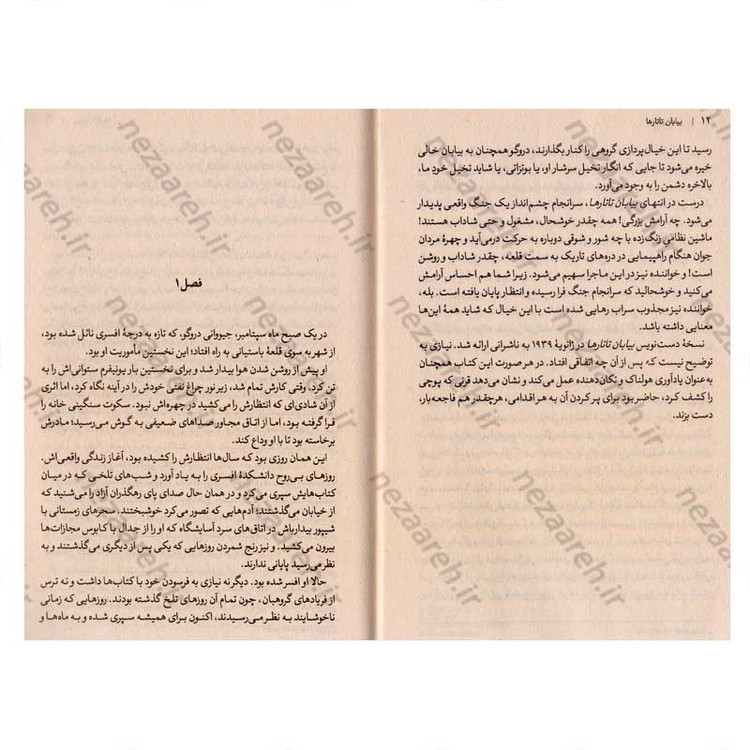 ۱۲ | بیابان تاتارها
رسید تا این خیال‌پردازی گروهی را کنار بگذارند، دروگو همچنان به بیابان خالی
خیره می‌شود تا جایی که انگار تخیل سرشار او، یا بوتزاتی، یا شاید تخیل خودِ ما،
بالاخره دشمن را به وجود می‌آورد.
درست در انتهای بیابان تاتارها، سرانجام چشم‌انداز یک جنگ واقعی پدیدار
می‌شود. چه آرامش بزرگی! همه چقدر خوشحال، مشغول و حتی شاداب هستند!
ماشین نظامیِ زنگ‌زده با چه شور و شوقی دوباره به حرکت درمی‌آید و چهرهٔ مردان
جوان هنگام راهپیمایی در دره‌های تاریک به سمت قلعه، چقدر شاداب و روشن
است! و خواننده نیز در این ماجرا سهیم می‌شود. زیرا شما هم احساس آرامش
می‌کنید و خوشحالید که سرانجام جنگ فرا رسیده و انتظار پایان یافته است. بله،
خواننده نیز مجذوب سراب رهایی شده است با این خیال که شاید همهٔ این‌ها
معنایی داشته باشد.
نسخهٔ دست‌نویس بیابان تاتارها در ژانویهٔ ۱۹۳۹ به ناشرانی ارائه شد. نیازی به
توضیح نیست که پس از آن چه اتفاقی افتاد. در هر صورت این کتاب همچنان
به‌عنوان یادآوری هولناک و تکان‌دهنده عمل می‌کند و نشان می‌دهد قرنی که پوچی
را کشف کرد، حاضر بود برای پر کردن آن به هر اقدامی، هرچقدر هم فاجعه‌بار،
دست بزند.
فصل ۱
در یک صبح ماه سپتامبر، جیوانی دروگو، که تازه به درجهٔ افسری نائل شده بود،
از شهر به سوی قلعهٔ باستیانی به راه افتاد؛ این نخستین مأموریت او بود.
او پیش از روشن شدن هوا بیدار شد و برای نخستین بار یونیفرم ستوانی‌اش را به
تن کرد. وقتی کارش تمام شد، زیر نور چراغ نفتی خودش را در آینه نگاه کرد، اما اثری
از آن شادی‌ای که انتظارش را می‌کشید در چهره‌اش نبود. سکوت سنگینی خانه را
فرا گرفته بود، اما از اتاق مجاور صداهای ضعیفی به گوش می‌رسید؛ مادرش
برخاسته بود تا با او وداع کند.
این همان روزی بود که سال‌ها انتظارش را کشیده بود، آغاز زندگی واقعی‌اش.
روزهای بی‌روح دانشکدهٔ افسری را به یاد آورد و شب‌های تلخی که در میان
کتاب‌هایش سپری می‌کرد و در همان حال صدای پای رهگذران آزاد را می‌شنید که
از خیابان می‌گذشتند؛ آدم‌هایی که تصور می‌کرد خوشبختند. سحرهای زمستانی با
شیپور بیدارباش در اتاق‌های سرد آسایشگاه که او را از جدال با کابوس مجازات‌ها
بیرون می‌کشید. و نیز رنج شمردن روزهایی که یکی پس از دیگری می‌گذشتند و به
نظر می‌رسید پایانی ندارند.
حالا او افسر شده بود. دیگر نه نیازی به فرسودن خود با کتاب‌ها داشت و نه ترس
از فریادهای گروهبان، چون تمام آن روزهای تلخ گذشته بودند. روزهایی که زمانی
ناخوشایند به نظر می‌رسیدند، اکنون برای همیشه سپری شده و به ماه‌ها و
nezaareh.ir
nezaareh.ir
nezaareh.ir
nezaareh.ir
nezaareh.ir
nezaareh.ir
nezaareh.ir
nezaareh.ir
nezaareh.ir
nezaareh.ir
nezaareh.ir